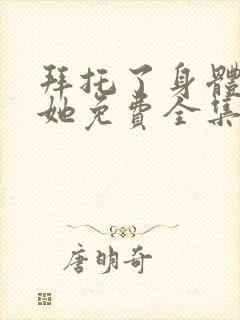 拜托了身體
她免費全集
唐明奇